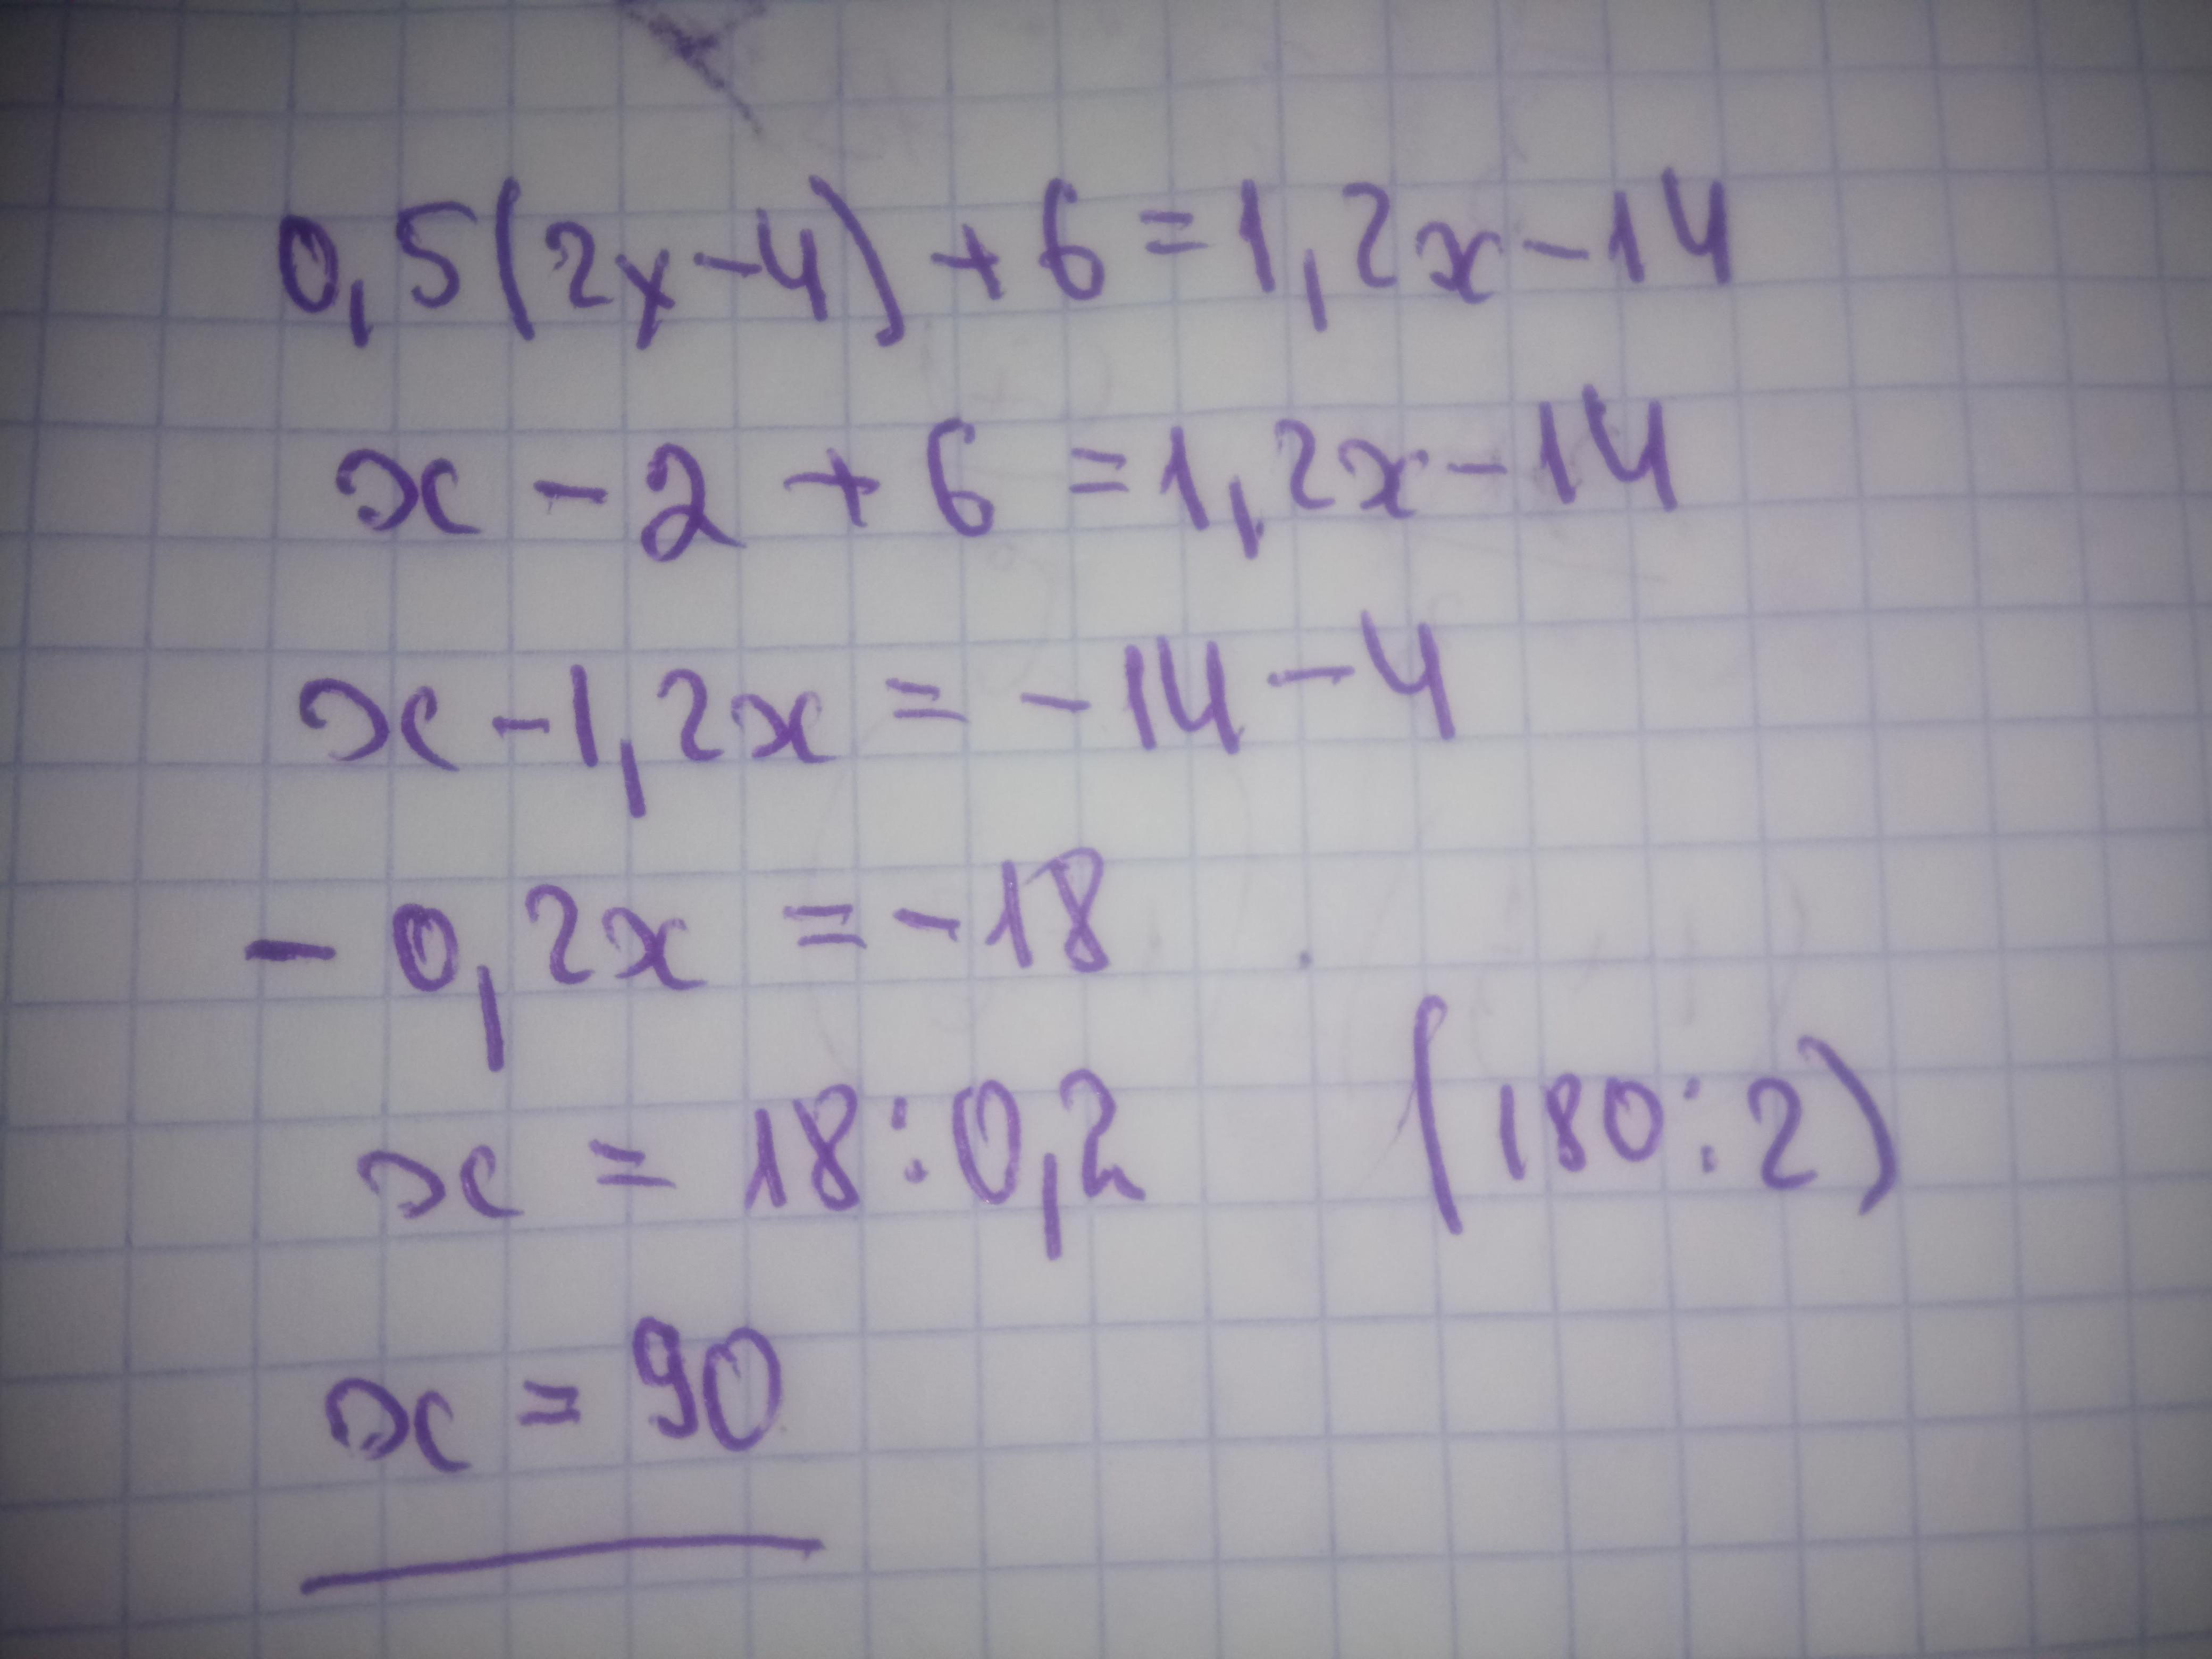 0,5(2x-4)+6=1,2x-14
x-2+6=1,2x-14
x-1,2x=-14-4
-0,2x=-18
x=18:0,2 (180:2)
x=90